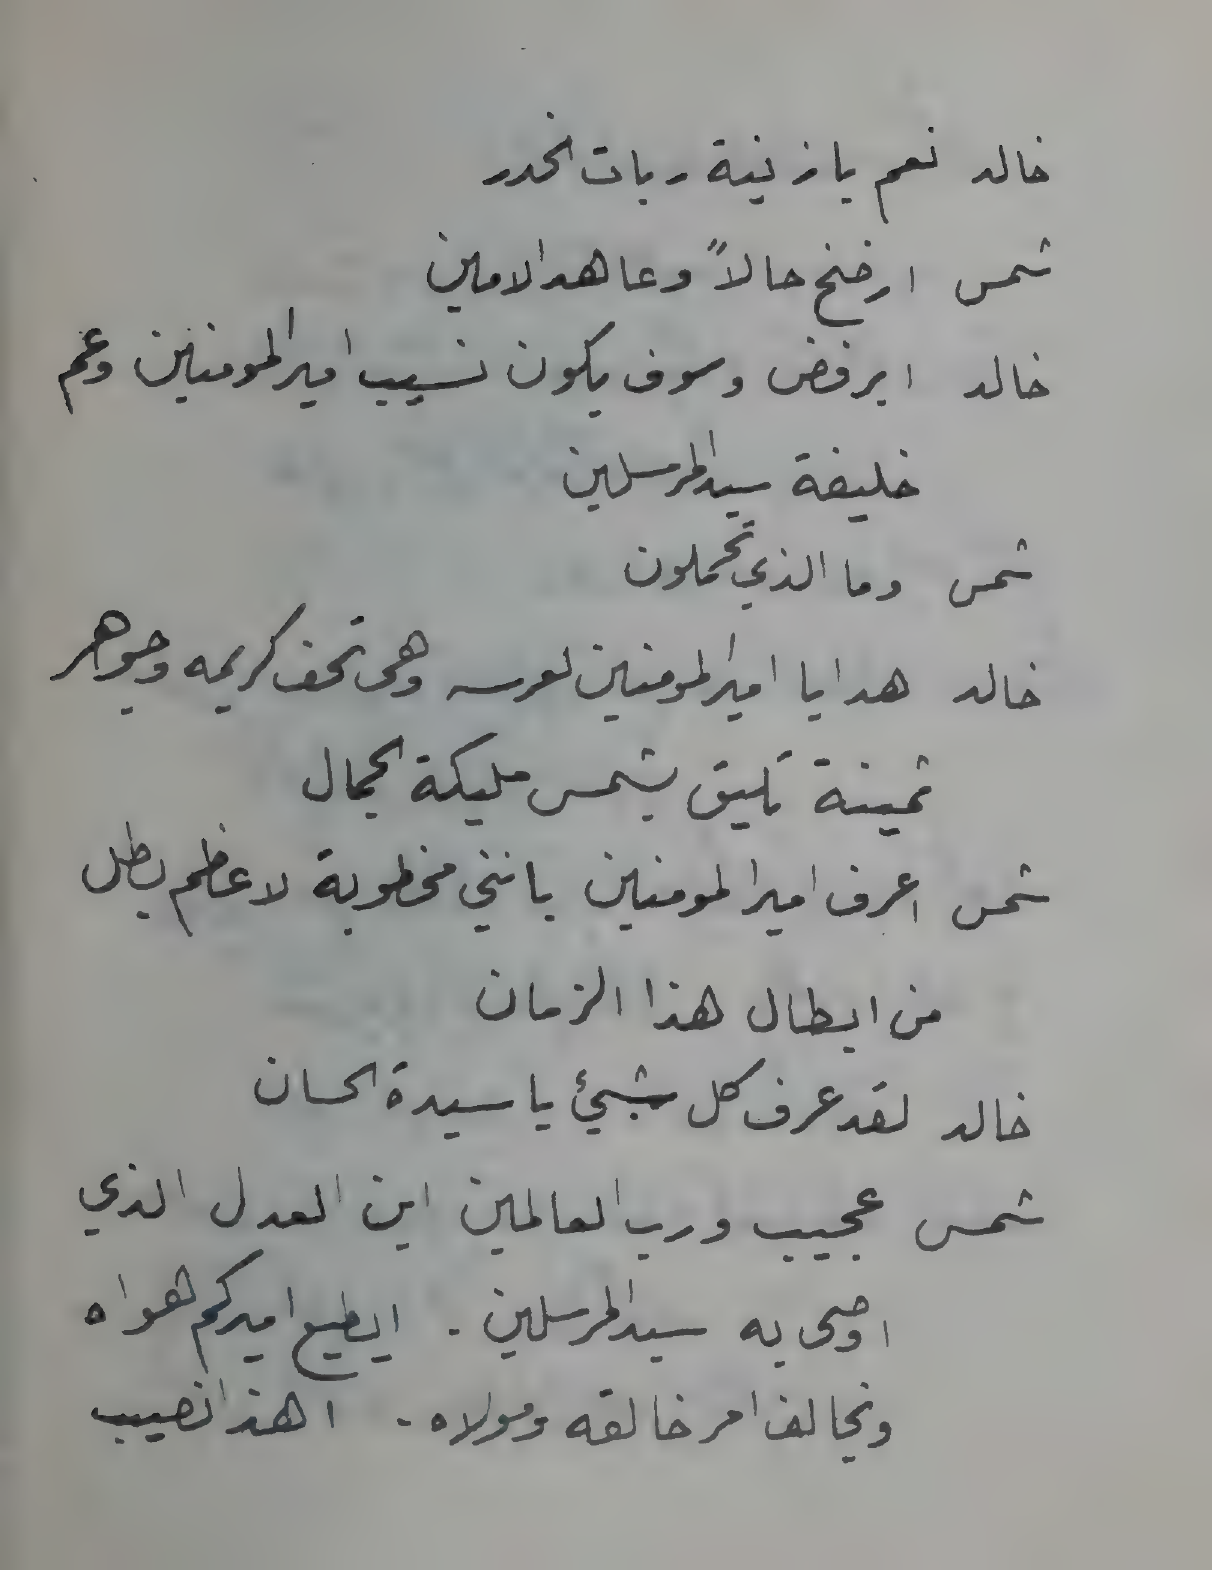 خالد نعم يا زينة ربات الخدر
شمس ارضخ حالاً وعاهد الامين
خالد ايرفض وسوف يكون نسيب امير المومنين وعم
خليفة سيد المرسلين
شمس وما الذي تحملون
خالد هدايا امير المومنين لعرسه وهى تحف كريمه وجوهر
ثمينة تليق بشمس مليكة الجمال
شمس اعرف امير المومنين باننني مخطوبة لاعظم بطل
من ابطال هذا الزمان
خالد لقد عرف كل شيئ يا سيدة الحسان
شمس عجيب ورب العالمين اين العدل الذي
اوصى به سيد المرسلين . ايطيع اميركم لهواه
ويخالف امر خالقه ومولاه . اهذا نصيب